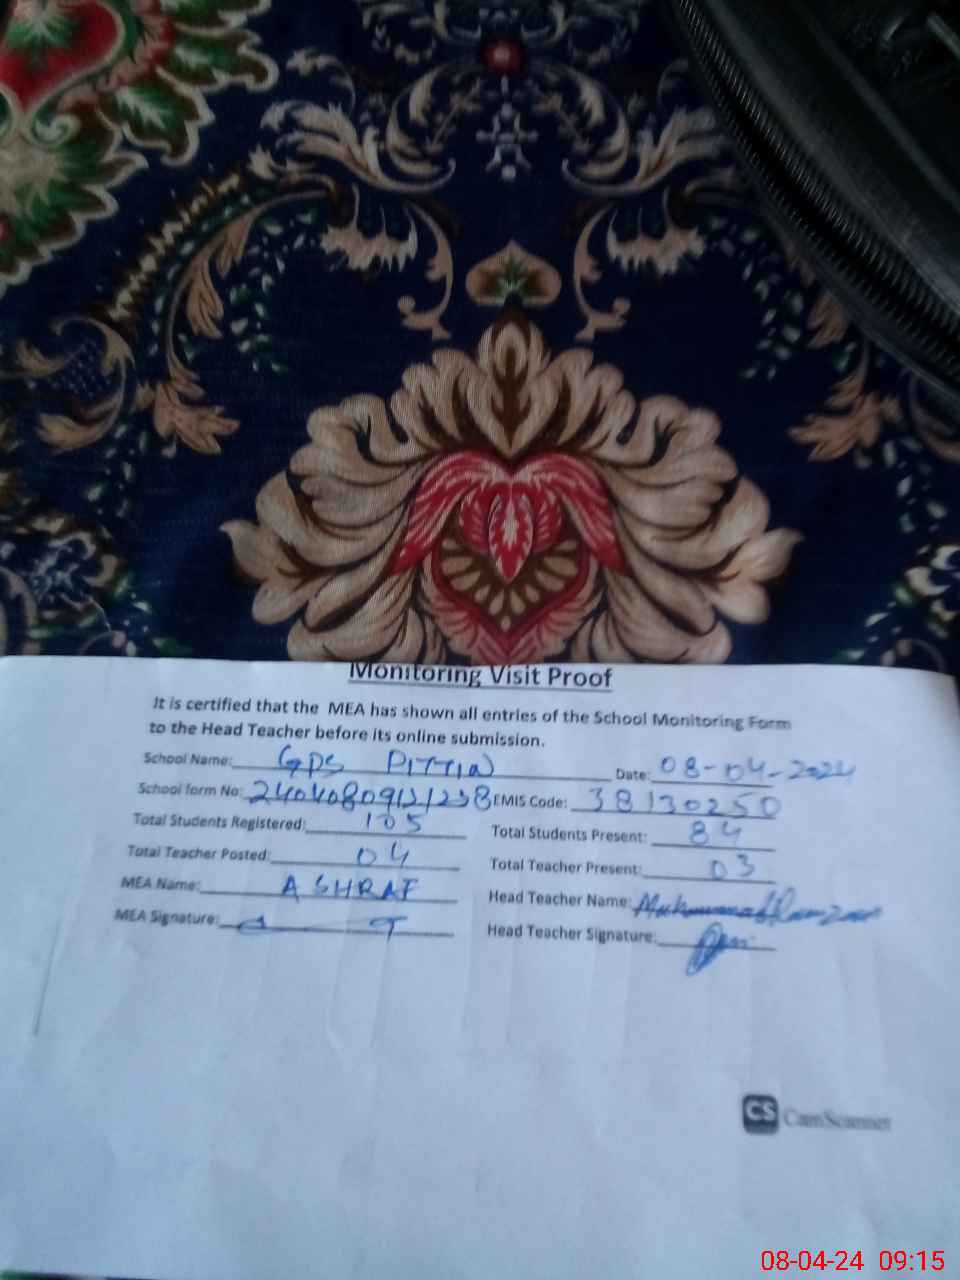 Monitoring Visit Proof
It is certified that the MEA has shown all entries of the School Monitoring Form
to the Head Teacher before its online submission.
School Name: GPS PITTIN Date: 08-04-2024
School form No: EMIS Code: 38130250
Total Students Registered: 105 Total Students Present: 84
Total Teacher Posted: 04 Total Teacher Present: 03
MEA Name: ASHRAF Head Teacher Name: Muhammad Ramzan
MEA Signature: Head Teacher Signature:
CS CamScanner
08-04-24 09:15